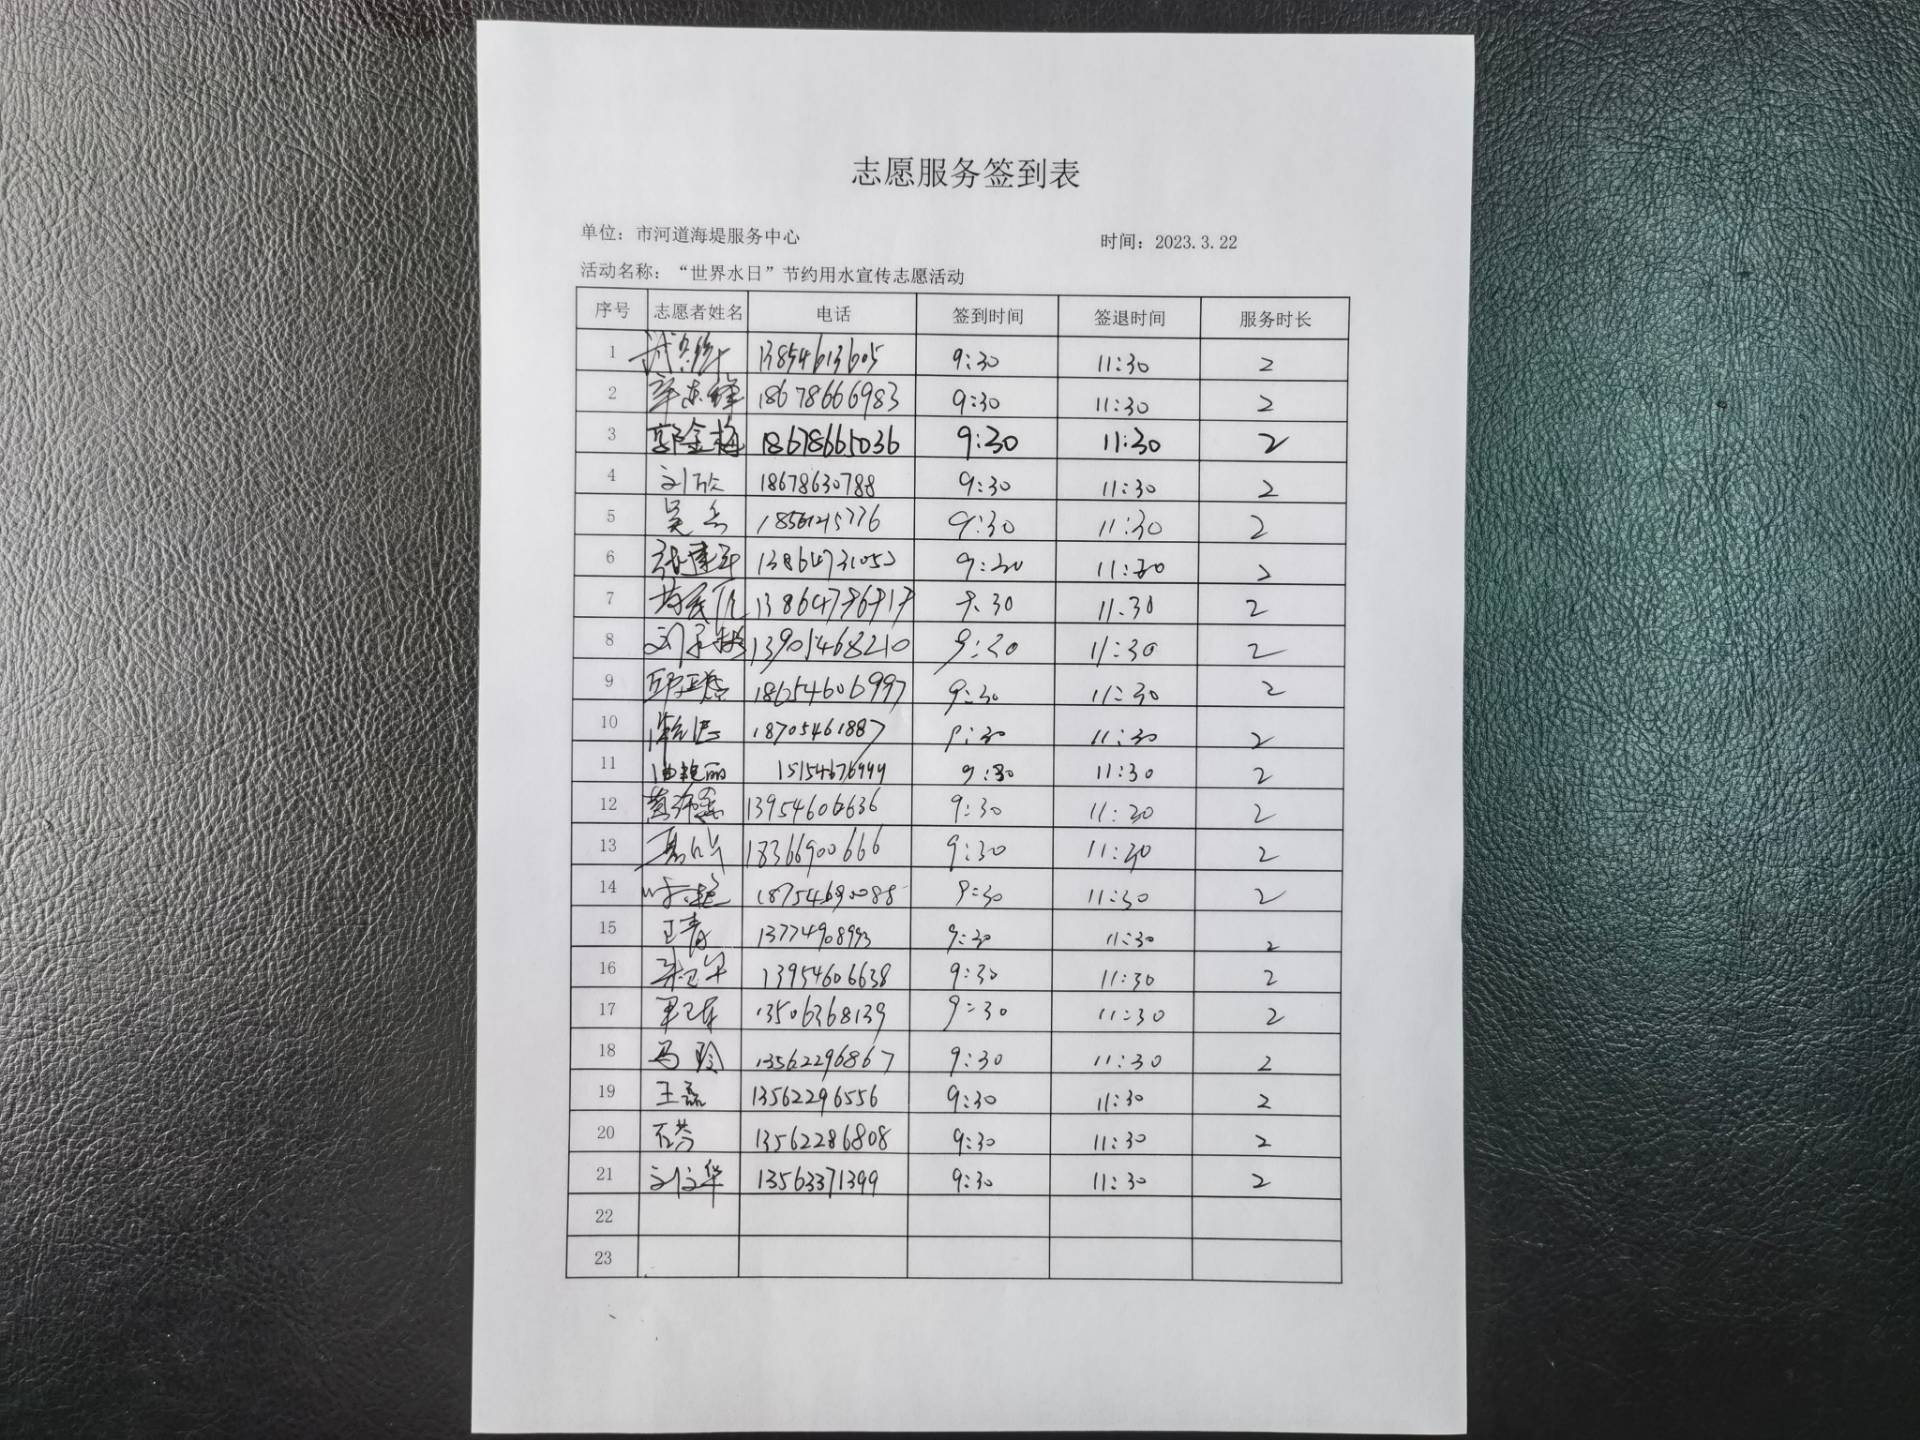 志愿服务签到表
单位：市河道海堤服务中心 时间：2023.3.22
活动名称：“世界水日”节约用水宣传志愿活动
序号 志愿者姓名 电话 签到时间 签退时间 服务时长
1 13854613605 9:30 11:30 2
2 18678666983 9:30 11:30 2
3 郭金梅 18678665036 9:30 11:30 2
4 刘欣 18678630788 9:30 11:30 2
5 吴 9:30 11:30 2
6 张建军 13864731052 9:30 11:30 2
7 9.30 11.30 2
8 刘 13901468210 9:30 11:30 2
9 18654606997 9:30 11:30 2
10 18705461887 9:30 11:30 2
11 油艳丽 9:30 11:30 2
12 13954606636 9:30 11:30 2
13 18366900666 9:30 11:30 2
14 18754690088 9:30 11:30 2
15 王青 13774908993 9:30 11:30 2
16 13954606638 9:30 11:30 2
17 13506368139 9:30 11:30 2
18 马玲 13562296867 9:30 11:30 2
19 王磊 13562296556 9:30 11:30 2
20 石芩 13562286808 9:30 11:30 2
21 刘文华 13563371399 9:30 11:30 2
22
23